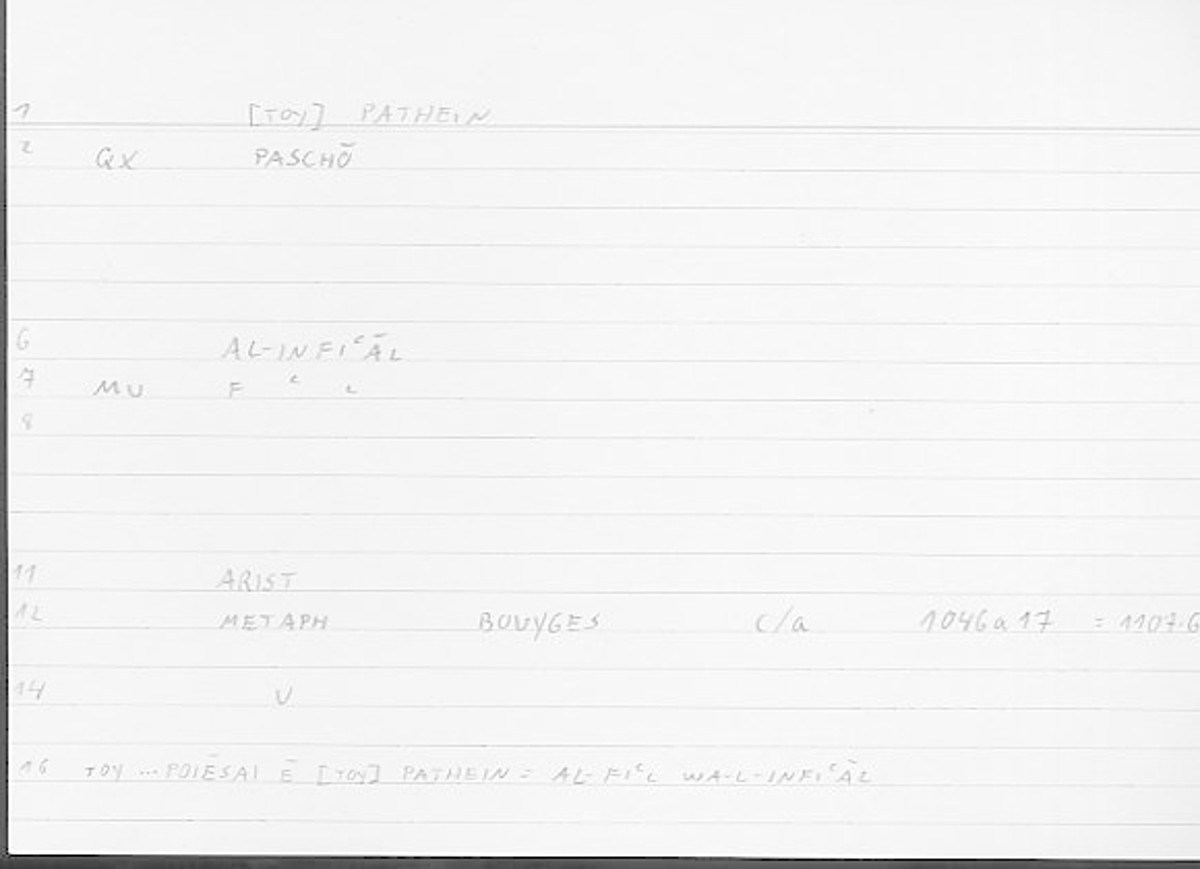 1 [TOY] PATHEIN
2 QX PASCHŌ
6 AL-INFIʿĀL
7 MU F ʿ L
8
11 ARIST
12 METAPH BOUYGES c/a 1046a17 = 1107.6
14 V
16 TOY ... POIĒSAI Ē [TOY] PATHEIN = AL-FIʿL WA-L-INFIʿĀL